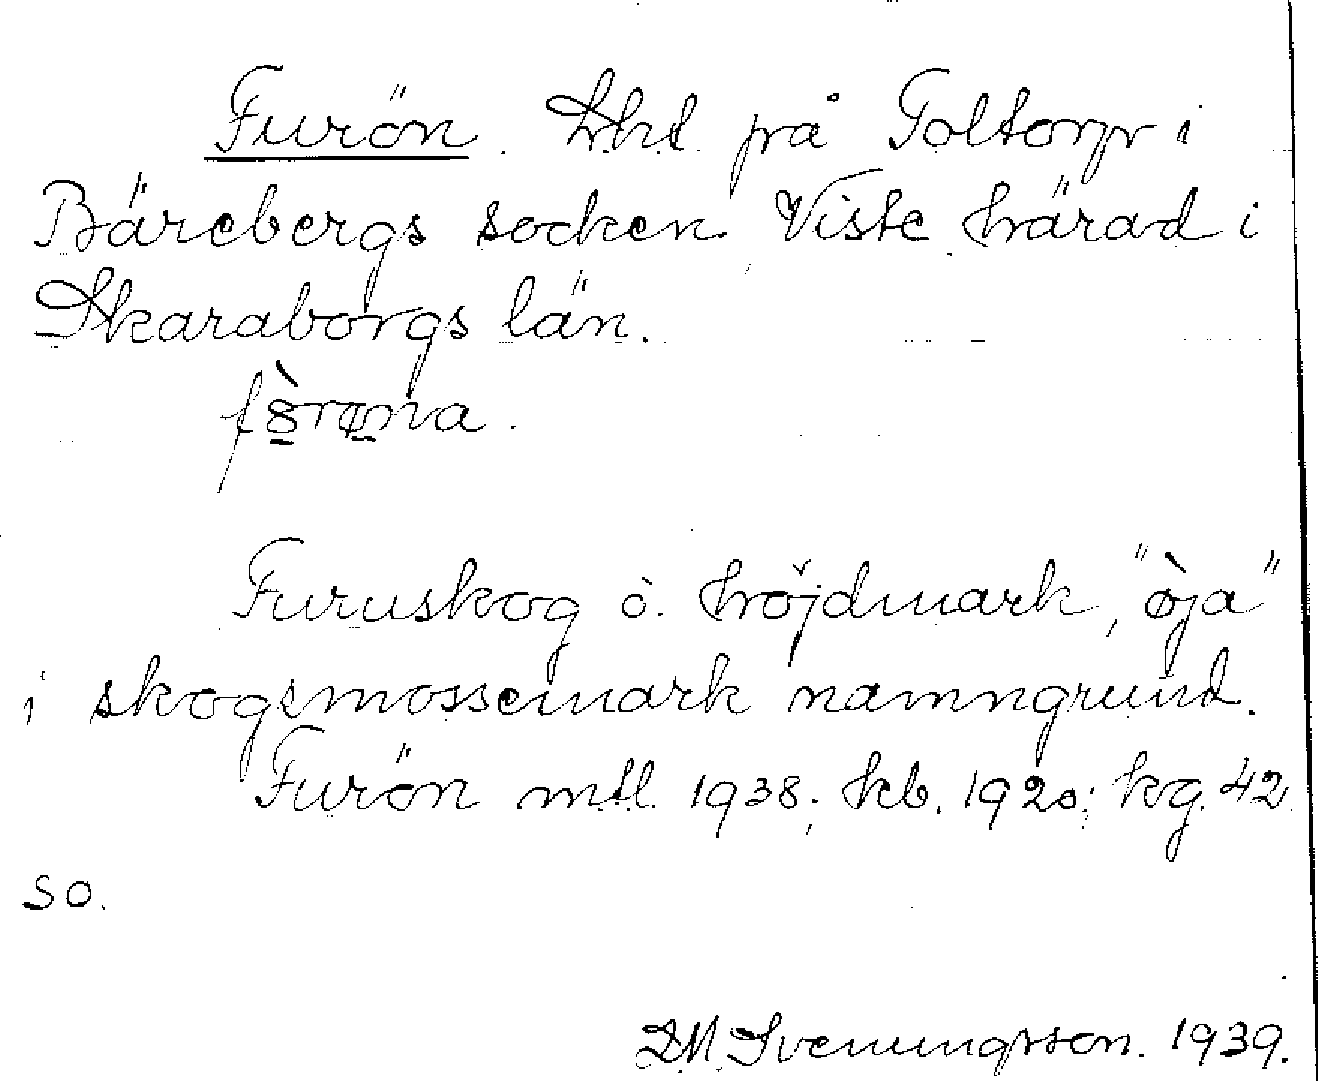 Furön. Lht på Toltorp i
Bärebergs socken Viste härad i
Skaraborgs län.
Furuskog o. höjdmark, "öja"
i skogsmossemark namngrund.
Furön mtl. 1938; kb. 1920; kg. 42
so.
D.M. Svenungsson. 1939.